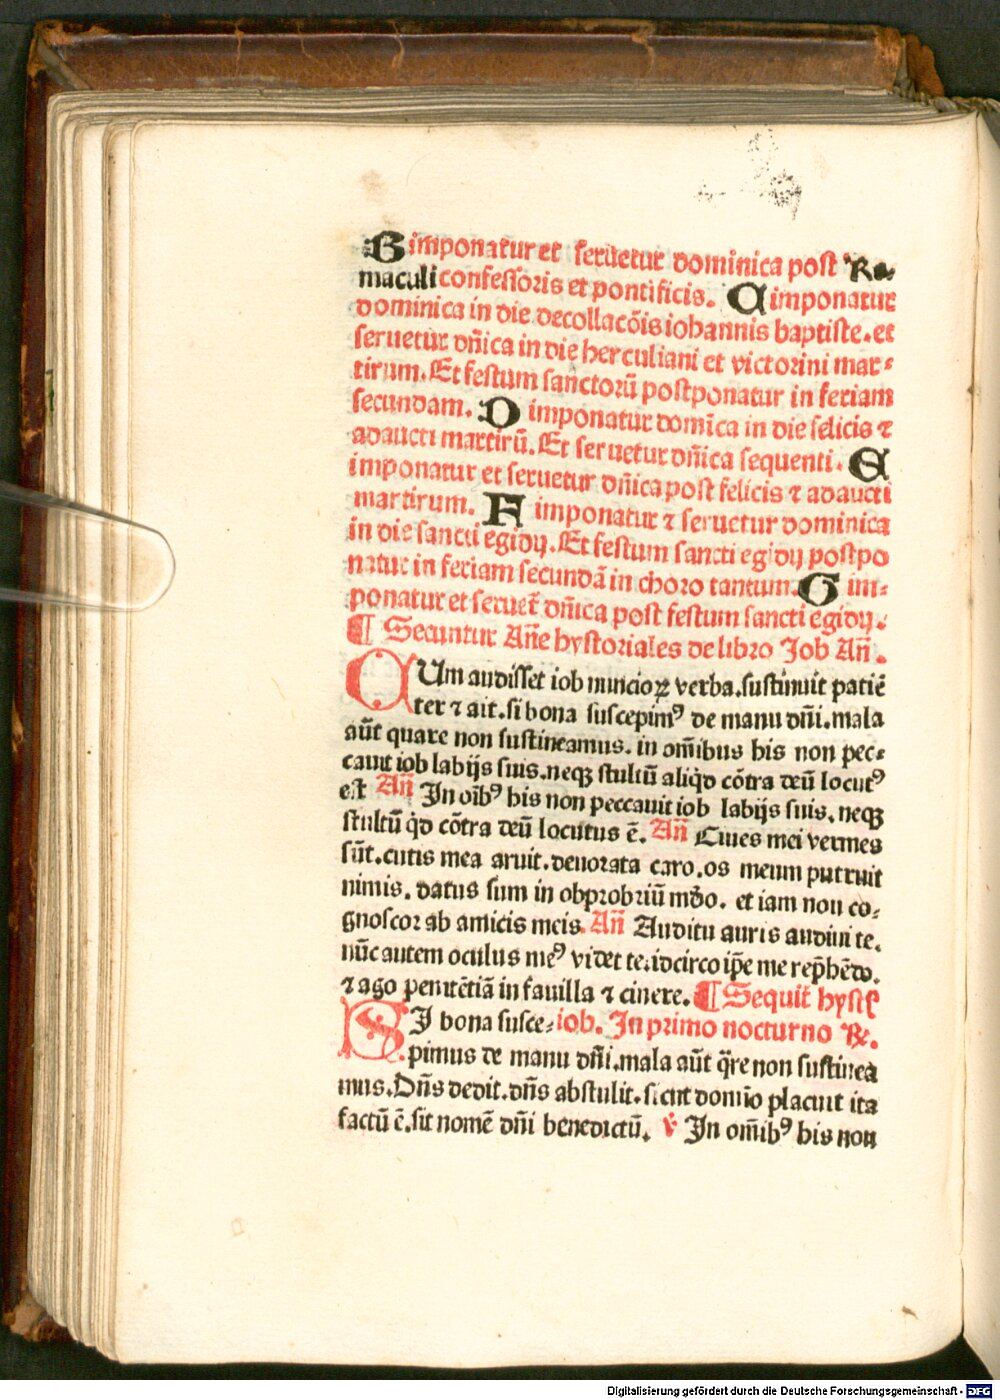 B imponatur et seruetur dominica post Ra-
maculi confessoris et pontificis. C imponatur
dominica in die decollacōis iohannis baptiste. et
seruetur dñica in die herculiani et victorini mar-
tirum. Et festum sanctorū postponatur in feriam
secundam. D imponatur domīca in die felicis ⁊
adaucti martirū. Et seruetur dñica sequenti. E
imponatur et seruetur dñica post felicis ⁊ adaucti
martirum. F imponatur ⁊ seruetur dominica
in die sancti egidij. Et festum sancti egidij postpo
natur in feriam secundā in choro tantum. G im-
ponatur et seruet̄ dñica post festum sancti egidij.
¶ Secuntur Añe hystoriales de libro Job Añ.
CUm audisset iob nuncioꝝ verba. sustinuit patiē
ter ⁊ ait. si bona suscepimꝰ de manu dñi. mala
aūt quare non sustineamus. in om̄ibus his non pec-
cauit iob labijs suis. neqꝫ stultū aliq̇d cōtra deū locutꝰ
est Añ In oībꝰ his non peccauit iob labijs suis. neqꝫ
stultū q̇d cōtra deū locutus ē. Añ Ciues mei vermes
sūt. cutis mea aruit. deuorata caro. os meum putruit
nimis. datus sum in obprobriū mđo. et iam non co-
gnoscor ab amicis meis. Añ Auditu auris audiui te.
nūc autem oculus meꝰ videt te. idcirco ip̄e me rep̄hēdo.
⁊ ago penitētiā in fauilla ⁊ cinere. ¶ Sequit̄ hyst̄
SI bona susce- iob. In primo nocturno ℟.
pimus de manu dñi. mala aūt q̄re non sustinea
mus. Dñs dedit. dñs abstulit. sicut domīo placuit ita
factū ē. sit nomē dñi benedictū. ℣ In om̄ibꝰ his non
Digitalisierung gefördert durch die Deutsche Forschungsgemeinschaft - DFG